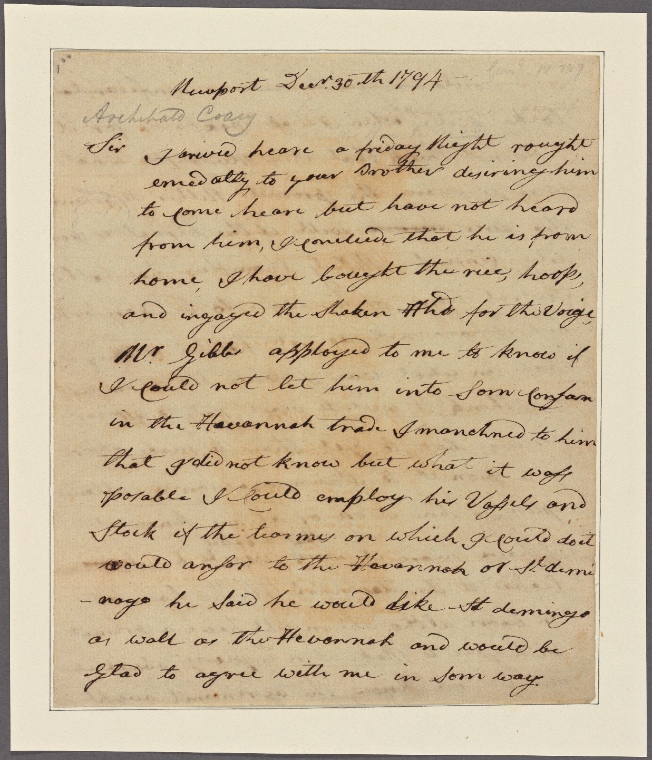 Newport Decr. 30th 1794
Archibald Crary
Sir I arived heare a friday Night rought
emedatly to your Brother desireing him
to Come heare but have not heard
from him, I Conclude that he is from
home, I have bought the rice, hoops,
and ingaged the Shaken Hhd for the Voige,
Mr. Gibbs applyed to me to know if
I Could not let him into Som Consarn
in the Havannah trade I manchned to him
that I did not know but what it wass
posable I Could employ his Vassels and
Stock if the tearmes on which I Could do it
would ansor to the Havannah or St. demi
-nago he Said he would like St demingo
as wall as the Havannah and would be
Glad to agree with me in Som way.